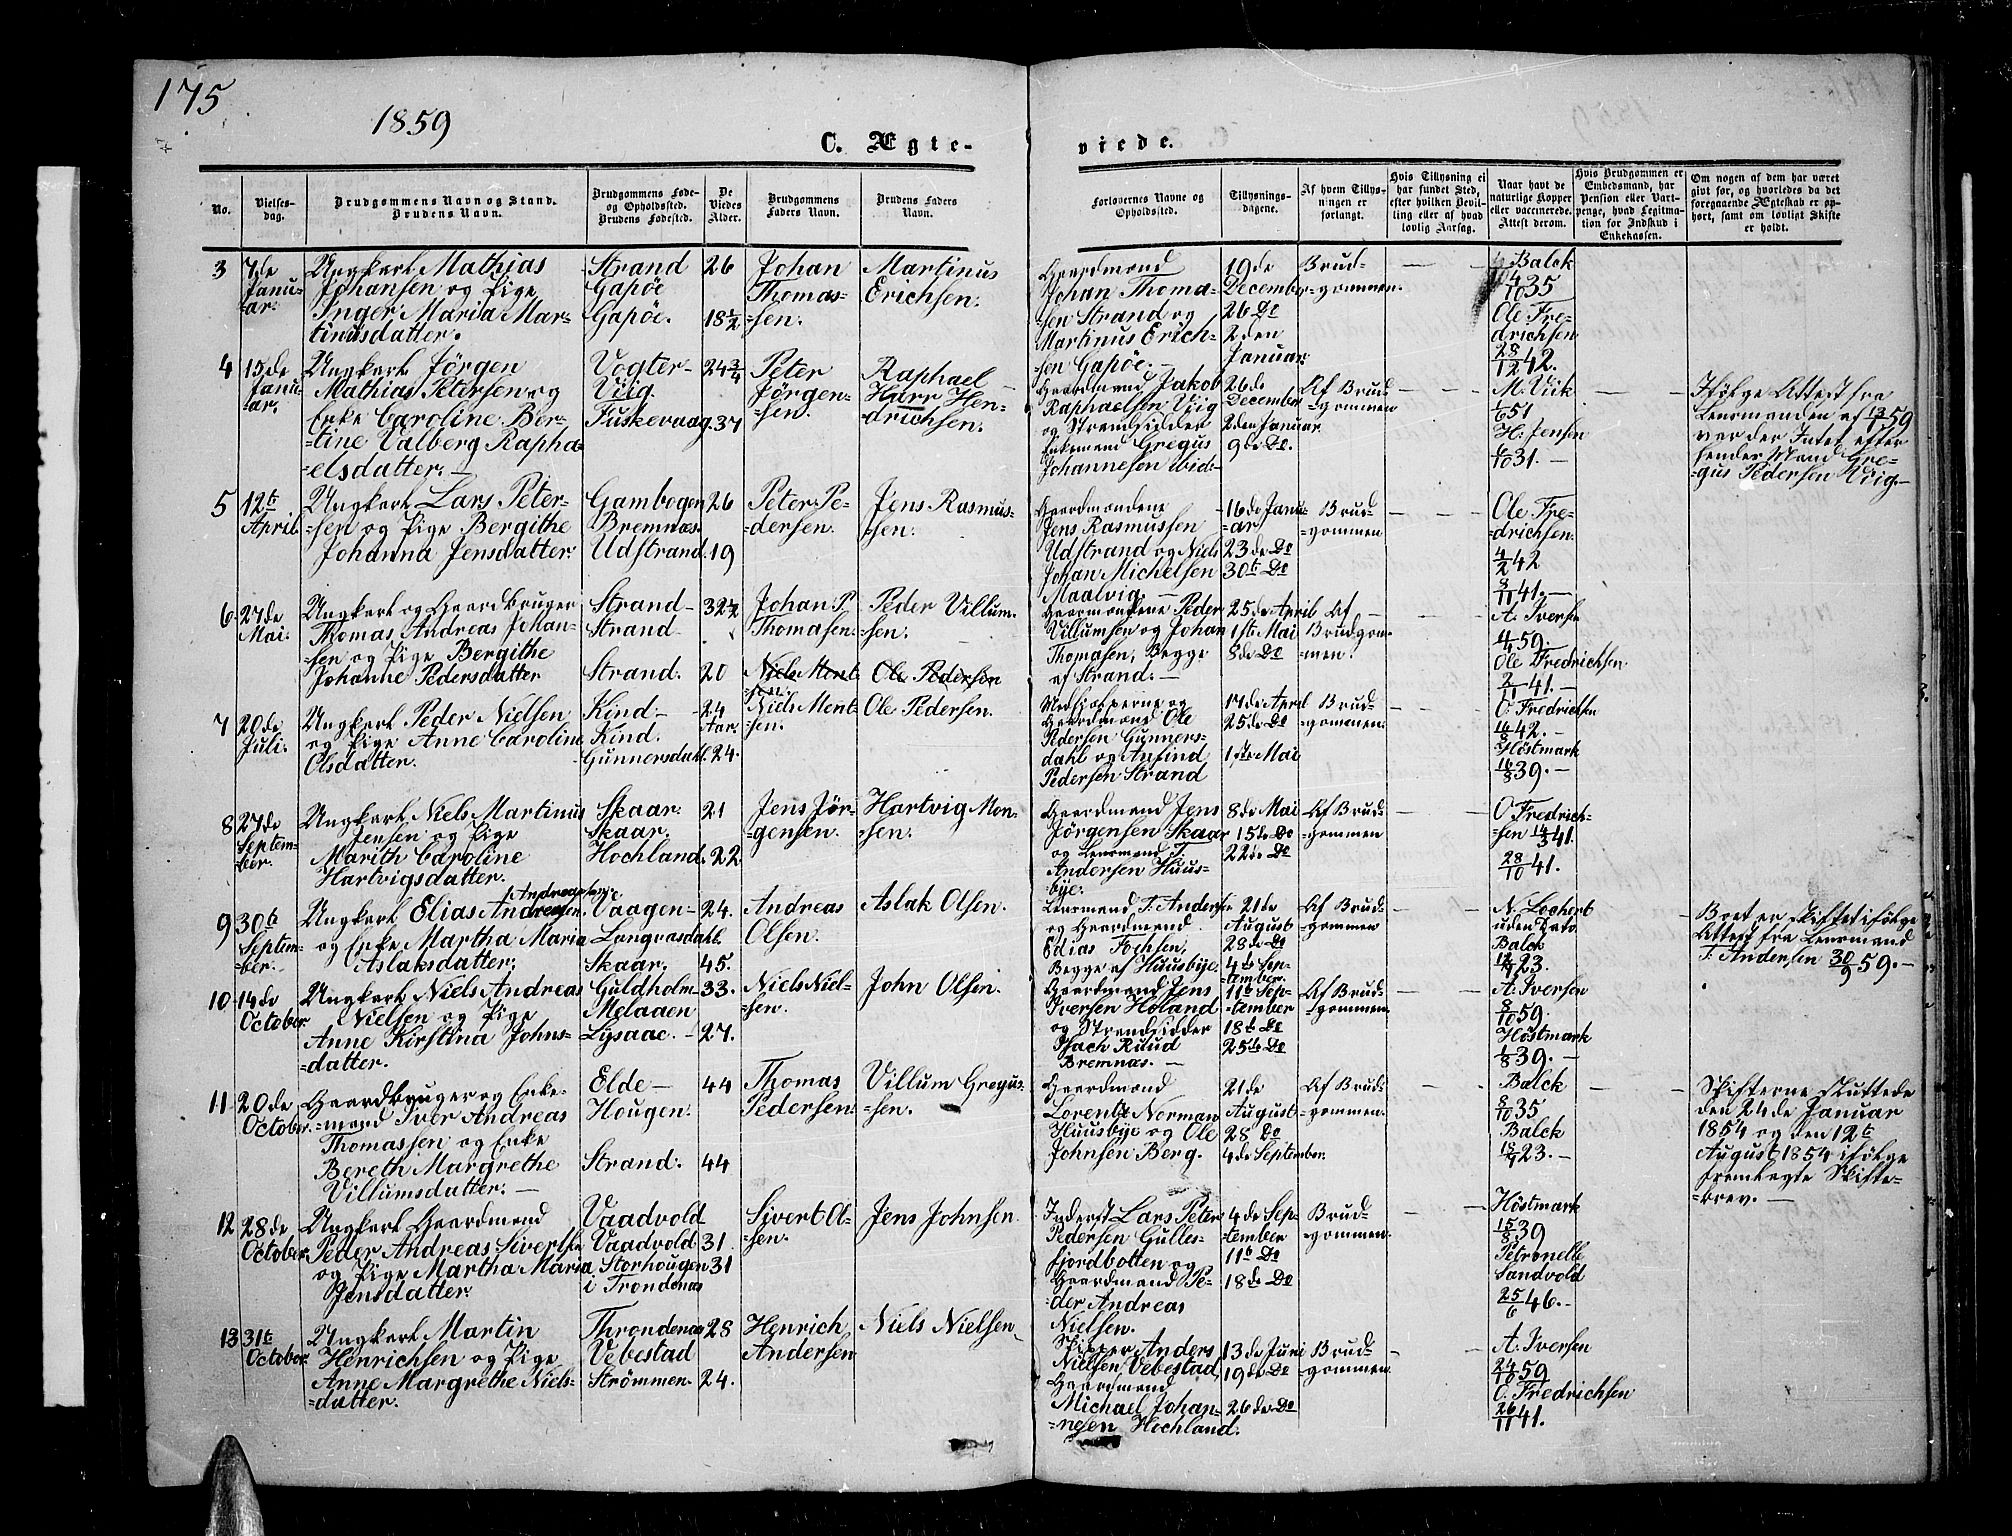 175
1859
C. Ægte-
viede.
No.
Vielses-
dag.
Brudgommens Navn og Stand.
Brudens Navn.
Brudgommens Føde-
og Opholdssted.
Brudens Fødested.
De
Viedes
Alder.
Brudgommens
Faders Navn.
Brudens Faders
Navn.
Forlovernes Navne og
Opholdssted.
Tillysnings-
dagene.
Af hvem Tillys-
ningen er
forlangt.
Hvis Tillysning ei
har fundet Sted,
efter hvilken Bevil-
ling eller af hvad
lovlig Aarsag.
Naar havt de
naturlige Kopper
eller vaccinerede.
Attest derom.
Hvis Brudgommen er
Embedsmand, har
Pension eller Vart-
penge, hvad Legitima-
tion for Indskud i
Enkekassen.
Om nogen af dem har været
givt før, og hvorledes da det
foregaaende Ægteskab er op-
hørt, samt om lovligt Skifte
er holdt.
3
7de
Janu-
ar.
Ungkarl Mathias
Johansen og Pige
Inger Maria Mar-
tinusdatter.
Strand
Gapöe
Gapöe.
26
18 1/2
Johan
Thomas-
=sen.
Martinus
Erichsen.
Gaardmand
Johan Thoma-
sen Strand og
Martinus Erich-
sen Gapöe.
19de
December
26 Do
2den
Januar
Brud-
=gommen.
Balck
4/10 35
Ole Fre-
drichsen
28/12 42.
4
15de
Janu-
ar.
Ungkarl Jörgen
Mathias Petersen og
Enke Caroline Ber-
=tine Valberg Rapha-
=elsdatter. —
Vogter-
Viig.
Fuskevaag.
24 3/4
37
Peter
Jörgen-
=sen.
Raphael
Harr Hen-
drichsen.
Gaardmand Jakob
Raphaelsen Viig
og Strandsidder
Enkemand Gregus
Johannesen ibid:
26de
December
2den Januar
9de Do.
Af Brud-
=gommen
M. Vik
1/6 51
H. Jensen
6/10 31. —
Ifölge Attest fra
Lensmanden af 13/1 59
var der Intet efter
hendes Mand Gre-
=gus Pedersen Viig. —
5
12te
April.
Ungkarl Lars Peter-
=sen og Pige Bergithe
Johanna Jensdatter.
Gambogen
Bremnæs.
Udstrand.
26
19
Peter Pe-
dersen.
Jens Rasmus-
=sen.
Gaardmændene
Jens Rasmussen
Udstrand og Niels
Johan Michelsen
Maalvig. —
16de Janu-
ar
23de Do
30te Do
Brud-
=gommen
Ole Fre-
=drichsen.
4/2 42
8/11 41. —
6
27de
Mai.
Ungkarl og Gaardbruger
Thomas Andreas Johan-
=sen og Pige Bergithe
Johanne Pedersdatter
Strand-
Strand
Strand.
32 1/2
20
Johan P.
Thomasen.
Peder Villum-
=sen.
Gaardmændene Peder
Villumsen og Johan
Thomasen, Begge
af Strand. —
25de April
1ste Mai
8de Do
Af
Brudgom-
men.
A. Iversen
4/4 59.
Ole Fredrichsen
2/11 41. —
Niels Ment-
sen.
Ole Pedersen
7
20de
Juli.
Ungkarl Peder Nielsen
og Pige Anne Caroline
Olsdatter.
Kind —
Kind.
Gunnersdahl.
24
Aar.
24.
Niels Ment-
sen.
Ole Pedersen.
Gaardmand Ole
Pedersen Gunners-
dahl og
Pedersen Strand
17de April
25de Do
1ste Mai
Brud-
=gommen.
O. Fredrichsen
16/8 42. —
Höstmark
16/8 39. —
8
27de
Septem-
ber.
Ungkarl Niels Martinus
Jensen og Pige
Marith Caroline
Hartvigsdatter.
Skaar.
Skaar.
Hochland.
21
22
Jens Jör-
=gensen.
Hartvig Mon-
sen.
Gaardmand Jens
Jörgensen Skaar
og Lensmand T.
Andersen Huus-
bye.
8de Mai
15de Do
22de Do
Af Brud-
gommen
O Fredrich-
=sen 14/3 41.
28/10 41.
9
30te
Septem-
=ber. —
Ungkarl Elias Andreasen.
og Enke Martha Maria
Aslaksdatter.
Vaagen-
Langvasdahl.
Skaar.
24.
45.
Andreas
Olsen.
Aslak Olsen.
Lensmand T. Andersen
og Gaardmand
Edias Tochsen,
Begge af Huusbye.
21de
August
28de Do
4de Sep-
tember.
Af Brud-
gommen
N. Lochert
uden Dato
Balck
12/9 23.
Boet er skiftet ifölge
Attest fra Lensmand
T. Andersen 30/9 59. —
10
14de
October
Ungkarl Niels Andreas
Nielsen og Pige
Anne Kirstina Johns-
=datter.
Guldholm-
Melaaen
Lysaae. —
33.
27.
Niels Niel-
sen.
John Olsen.
Gaardmand Jens
Iversen Holand
og Strandsidder
Isach Ruud
Bremnæs. —
11te Sep-
=tember
18de Do
25de Do
Af Brud-
=gommen.
A. Iversen
8/10 59.
Höstmark
1/8 39. —
11
20de
October.
Gaardbruger og Enke-
=mand Iver Andreas
Thomassen og Enke
Bereth Margrethe
Villumsdatter. —
Elde —
Hougen.
Strand.
44
44
Thomas
Pedersen.
Villum Gregus-
=sen.
Gaardmand
Lorentz Norman
Huusbye og Ole
Johnsen Berg.
21de
August
28 Do
4de September.
Af Brud-
=gommen.
Balck
8/10 35
Balck
18/9 23. —
Skifterne sluttede
den 24de Januar
1854 og den 12te
August 1854 ifölge
fremlagte Skifte-
=brev. —
12
28de
October.
Ungkarl Gaardmand
Peder Andreas Sivertsen
og Pige Martha Maria
Jensdatter.
Vaadvold
Vaadvold
Storhougen
i Trondenæs
31
31
Sivert Ol-
sen.
Jens Johnsen
Inderst Lars Peter
Pedersen Gulles-
fjordbotten og
Gaardmand Pe-
=der Andreas
Nielsen.
4de Sep-
tember
11te Do
18de Do
Brud-
=gommen.
Höstmark
15/8 39
Petronelle
Sandvold
25/6 46. —
13
31te
October.
Ungkarl Martin
Henrichsen og Pige
Anne Margrethe Niels-
=datter.
Throndenæs
Vebestad
Strömmen.
28
24.
Henrich
Andersen
Niels Nielsen
Skipper Anders
Nielsen Vebestad,
Gaardmand
Michael Johan-
=nesen Hochland.
13de Juni
19de Do
26de Do
Brud-
=gommen
A. Iversen
24/10 59
O. Fredrichsen
26/11 41.